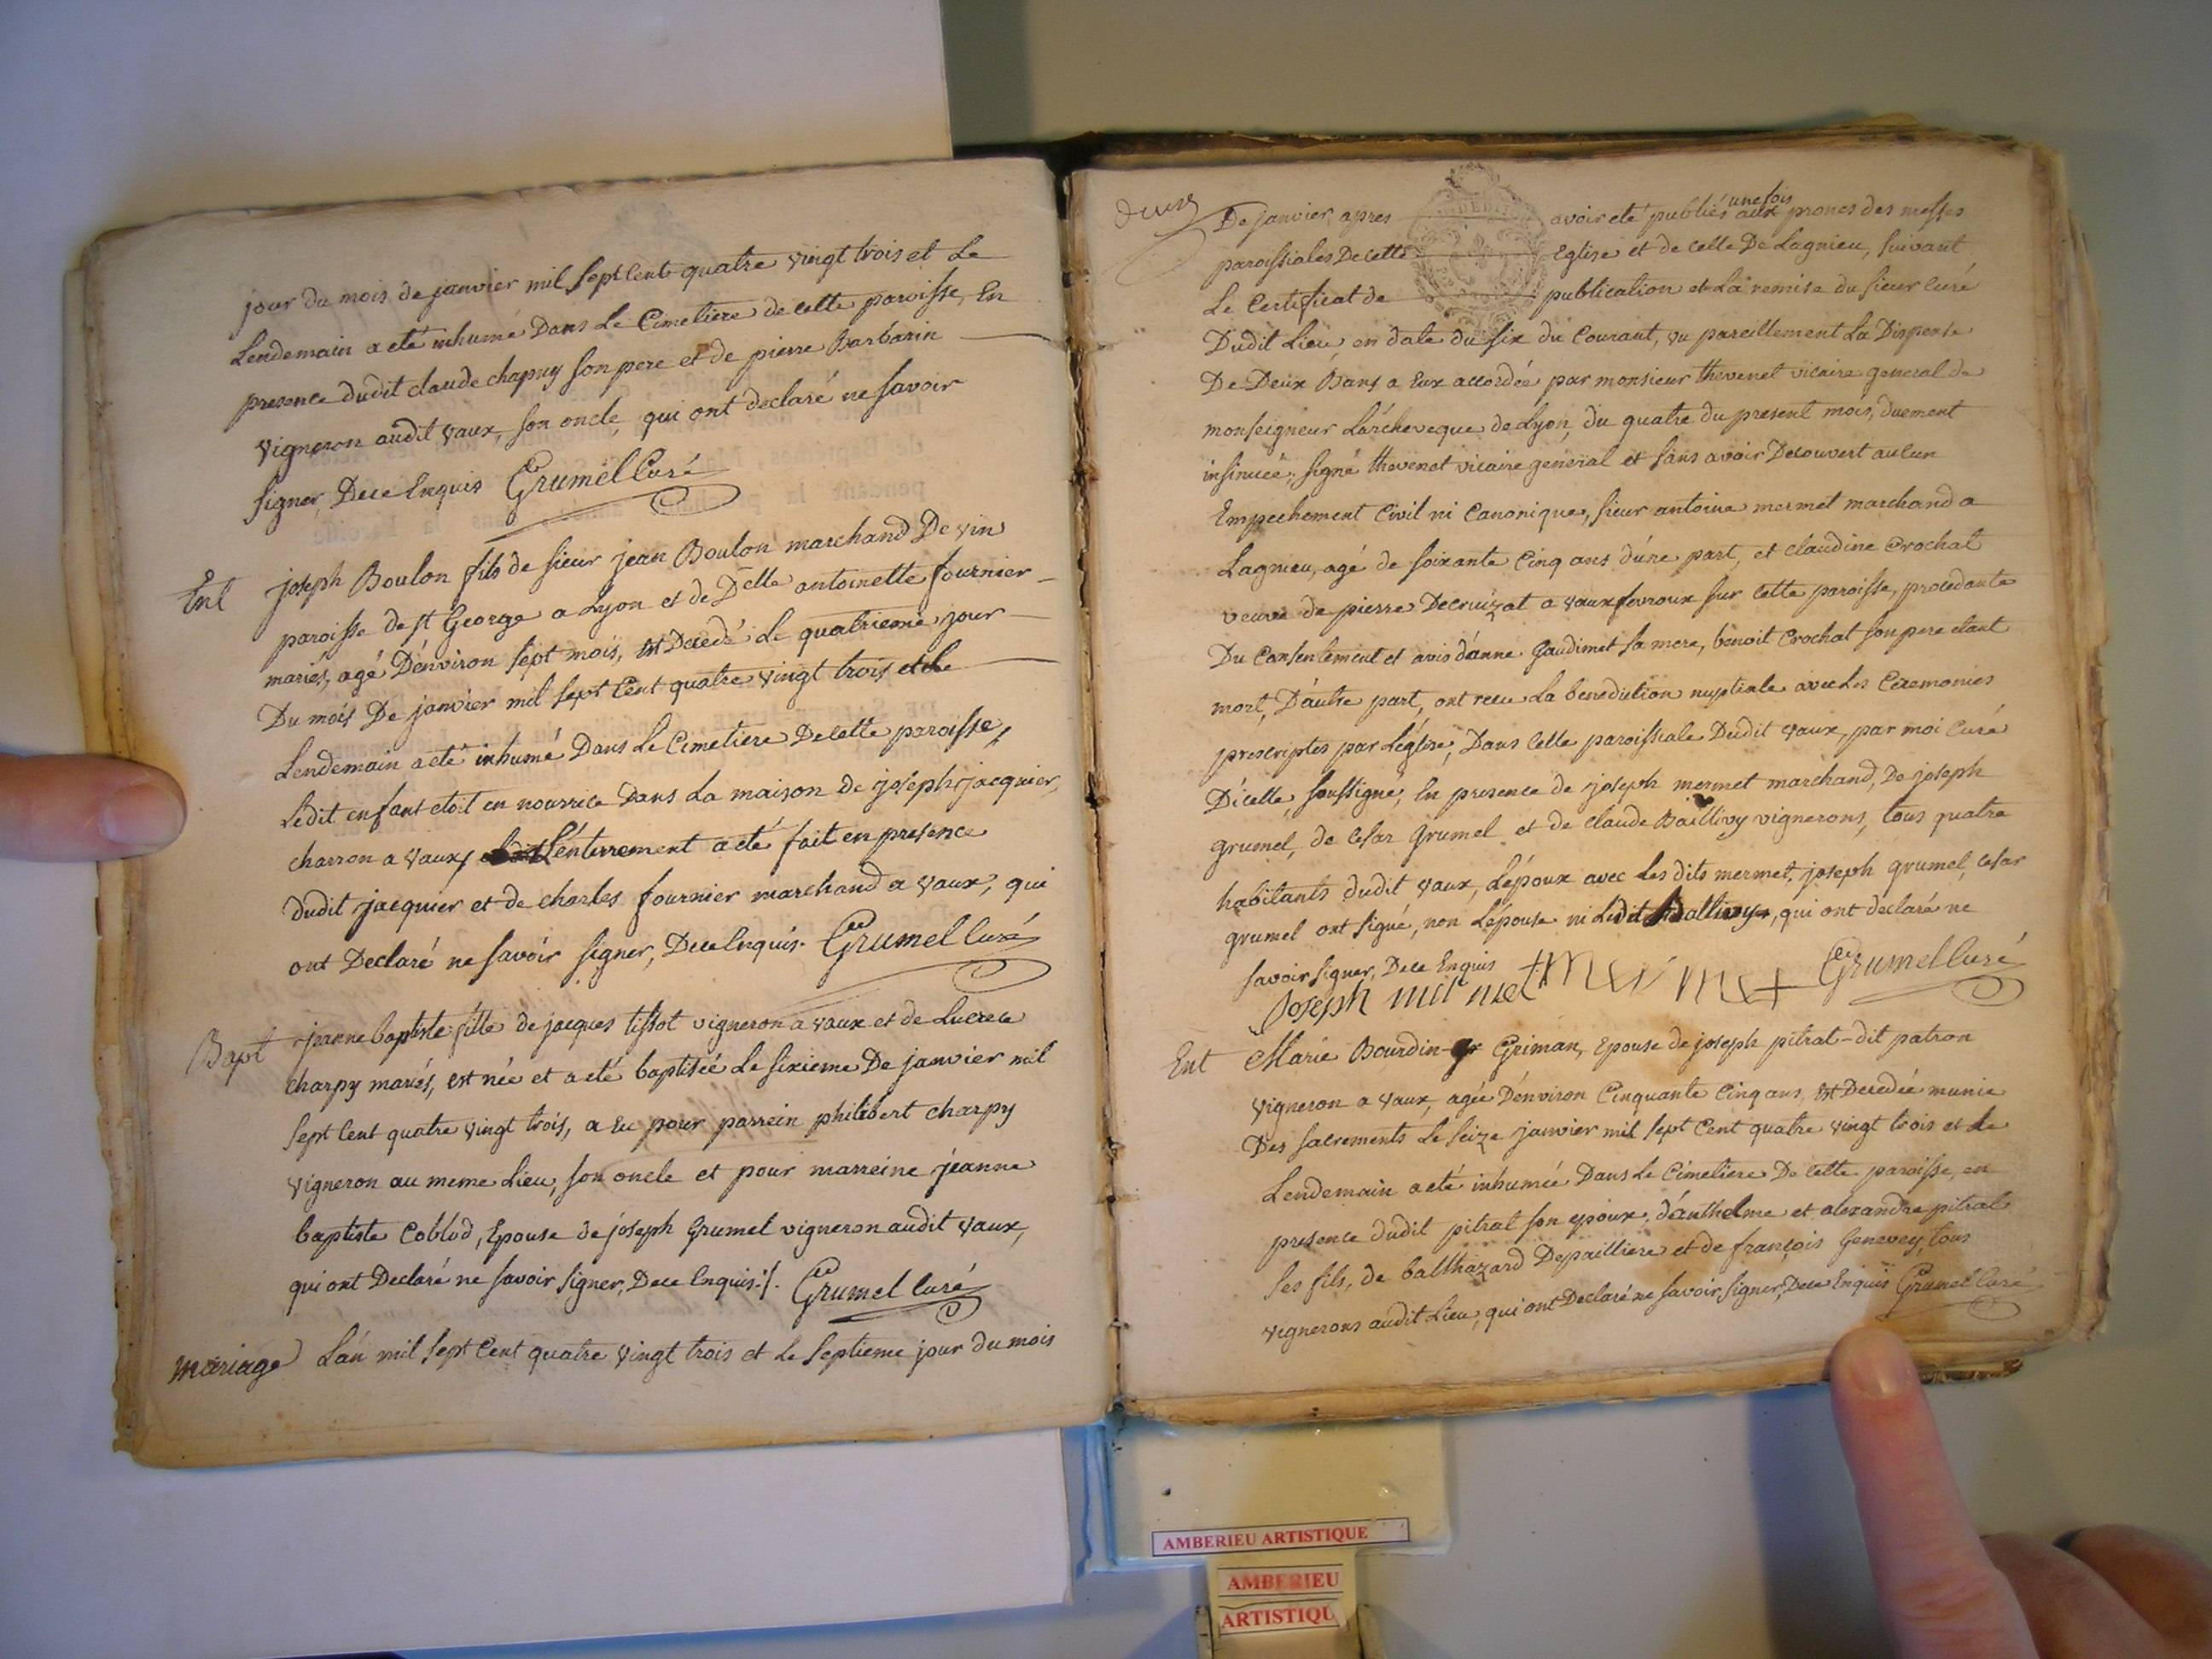 jour du mois de janvier mil sept cent quatre vingt trois et Le
Lendemain a eté inhumé Dans Le Cimetiere de cette paroisse, En
presence dudit claude chapuy son pere et de pierre Barbarin
vigneron audit vaux, son oncle, qui ont declaré ne savoir
signer, Dece Enquis Grumel Curé
Ent joseph Boulon fils de sieur jean Boulon marchand De vin
paroisse de st George a Lyon et de Delle antoinette fournier
mariés, agé D'environ sept mois, est Decedé Le quatrieme jour
Du mois De janvier mil sept Cent quatre vingt trois et le
Lendemain a eté inhumé Dans Le Cimetiere De cette paroisse,
Ledit enfant etoit en nourrice Dans La maison de joseph jacquier,
charron a vaux, L'enterrement a eté fait en presence
dudit jacquier et de charles fournier marchand a vaux, qui
ont Declaré ne savoir signer, Dece Enquis. Grumel Curé
Bapt jeanne baptiste fille de jacques tissot vigneron a vaux et de Lucrece
charpy mariés, est née et a eté baptisée Le sixieme De janvier mil
sept Cent quatre vingt trois, a Eu pour parrein philibert charpy
vigneron au meme Lieu, son oncle et pour marreine jeanne
baptiste Coblod, Epouse de joseph Grumel vigneron audit vaux,
qui ont Declaré ne savoir signer, Dece Enquis ./. Grumel Curé
mariage L'an mil sept Cent quatre vingt trois et Le septieme jour du mois
deux De janvier, apres avoir eté publiés une fois aux prones des messes
paroissiales De cette Eglise et de celle De Lagnieu, suivant
Le Certificat de publication et La remise du sieur Curé
Dudit Lieu, en date du six du Courant, vu pareillement La Dispense
De Deux Bans a Eux accordée par monsieur thevenet vicaire general de
monseigneur L'archeveque de Lyon, du quatre du present mois, duement
insinuée, signé thevenet vicaire general et sans avoir Decouvert aucun
Empechement Civil ni Canonique, sieur antoine mermet marchand a
Lagnieu, agé de soixante Cinq ans d'une part, et claudine Crochat
veuve de pierre Decruizat a vaux fevroux sur cette paroisse, procedante
Du Consentement et avis d'anne Gaudimet sa mere, benoit Crochat son pere etant
mort, D'autre part, ont recu La benediction nuptiale avec Les Ceremonies
prescriptes par L'église, Dans celle paroissiale Dudit vaux, par moi Curé
D'icelle, soussigné, En presence de joseph mermet marchand, De joseph
grumel, de Cesar Grumel et de claude Baillivy vignerons, tous quatre
habitants dudit vaux, L'époux avec Les dits mermet, joseph grumel, Cesar
grumel ont signé, non L'épouse ni Ledit Ballivy, qui ont declaré ne
savoir signer, Dece Enquis mermet Grumel Curé
Joseph mermet
Ent Marie Bourdin Griman, Epouse de joseph pitrat dit patron
vigneron a vaux, agée D'environ Cinquante Cinq ans, est Decedée munie
Des sacrements Le seize janvier mil sept Cent quatre vingt trois et Le
Lendemain a eté inhumée Dans Le Cimetiere De cette paroisse, en
presence dudit pitrat son epoux, d'anthelme et alexandre pitrat
ses fils, de balthazard Depailliere et de françois Genevey, tous
vignerons audit Lieu, qui ont Declaré ne savoir signer, Dece Enquis Grumel Curé
AMBERIEU ARTISTIQUE
AMBERIEU
ARTISTIQU